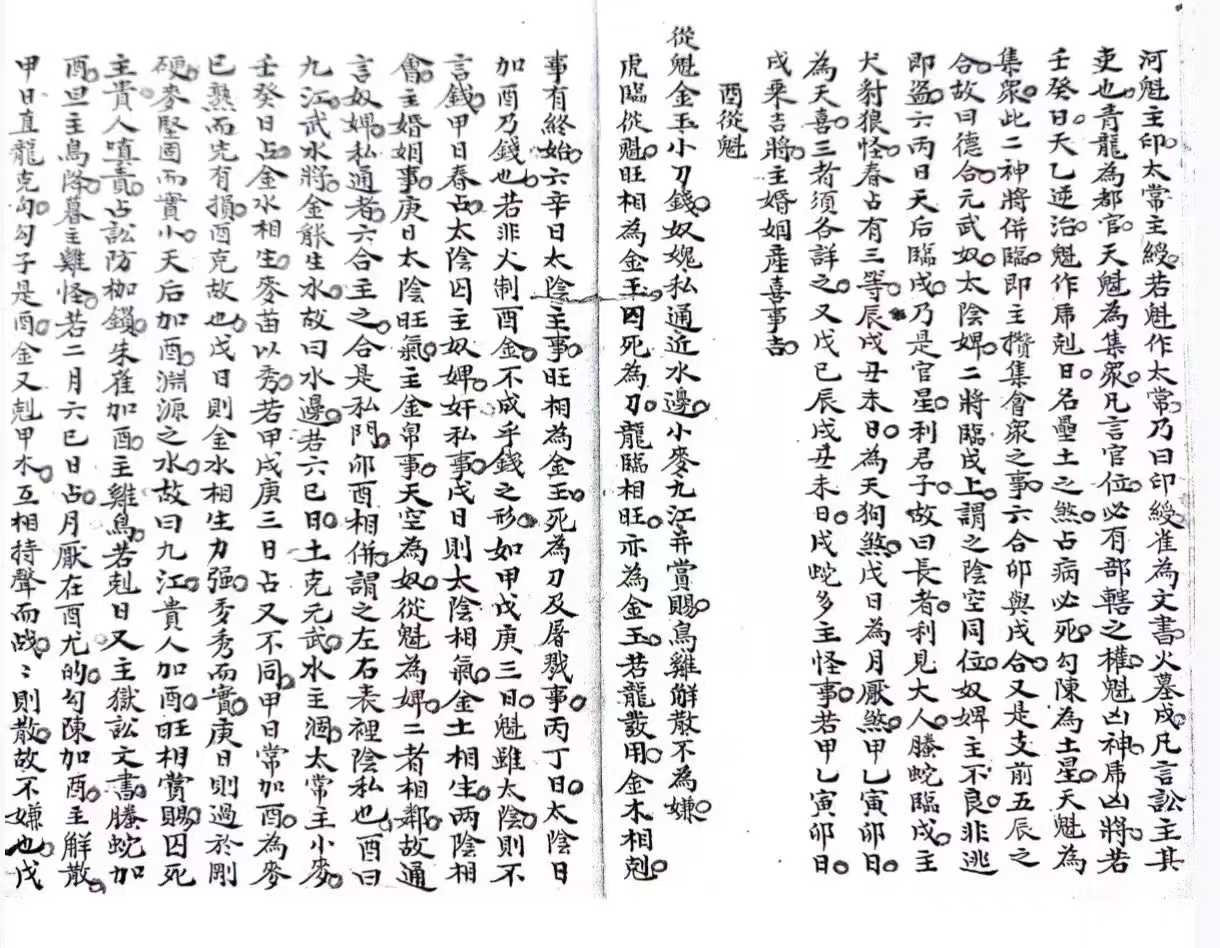 河魁主印。太常主綬。若魁作太常。乃曰印綬。雀為文書。火墓戍。凡言訟主其
吏也。青龍為都官。天魁為集衆。凡言官位。必有部轄之權。魁凶神。乕凶將。若
壬癸日。天乙逆治。魁作乕剋日。名壘土之煞。占病必死。勾陳為土星。天魁為
集衆。此二神將併臨。即主攢集會衆之事。六合卯與戍合。又是支前五辰之
合。故曰德合。元武奴。太陰婢。二將臨戍上。謂之陰空同位。奴婢主不良。非逃
即盜。六丙日。天后臨戍。乃是官星。利君子。故曰長者。利見大人。螣蛇臨戍。主
犬豺狼怪。春占有三等。辰戍丑未日。為天狗煞。戊日為月厭煞。甲乙寅卯日。
為天喜。三者須各詳之。又戊已辰戍丑未日。戍蛇多主怪事。若甲乙寅卯日。
戍乘吉將。主婚姻產喜事吉。
酉從魁
從魁金玉小刀錢。奴媿私通近水邊。小麥九江并賞賜。鳥雞解散不為嫌。
虎臨從魁。旺相為金玉。囚死為刀。龍臨相旺。亦為金玉。若龍發用。金木相剋。
事有終始。六辛日太陰主事。旺相為金玉。死為刀及屠戮事。丙丁日。太陰日
加酉乃錢也。若非火制酉金。不成乎錢之形。如甲戊庚三日。魁雖太陰。則不
言錢。甲日春占。太陰囚主奴婢奸私事。戊日則太陰相氣。金土相生。两陰相
會。主婚姻事。庚日太陰旺氣。主金帛事。天空為奴。從魁為婢。二者相鄰。故通
言奴婢。私通者。六合主之。合是私門。卯酉相併。謂之左右表裡陰私也。酉曰
九江。武水將。金能生水。故曰水邊。若六已日。土克元武。水主涸。太常主小麥。
壬癸日占。金水相生。麥苗以秀。若甲戍庚三日占又不同。甲日常加酉。為麥
已熟而先有損。酉克故也。戊日則金水相生力强。麥秀而實。庚日則過於剛
硬。麥堅固而實小。天后加酉。淵源之水。故曰九江。貴人加酉。旺相賞賜。囚死
主貴人嗔責。占訟防枷鎖。朱雀加酉。主雞鳥。若剋日又主獄訟文書。螣蛇加
酉。旦主鳥降。暮主雞怪。若二月六巳日占。月厭在酉尤的。勾陳加酉。主解散。
甲日直龍克勾。勾子是酉。金又剋甲木。互相持聲而战。〻則散。故不嫌也。戊